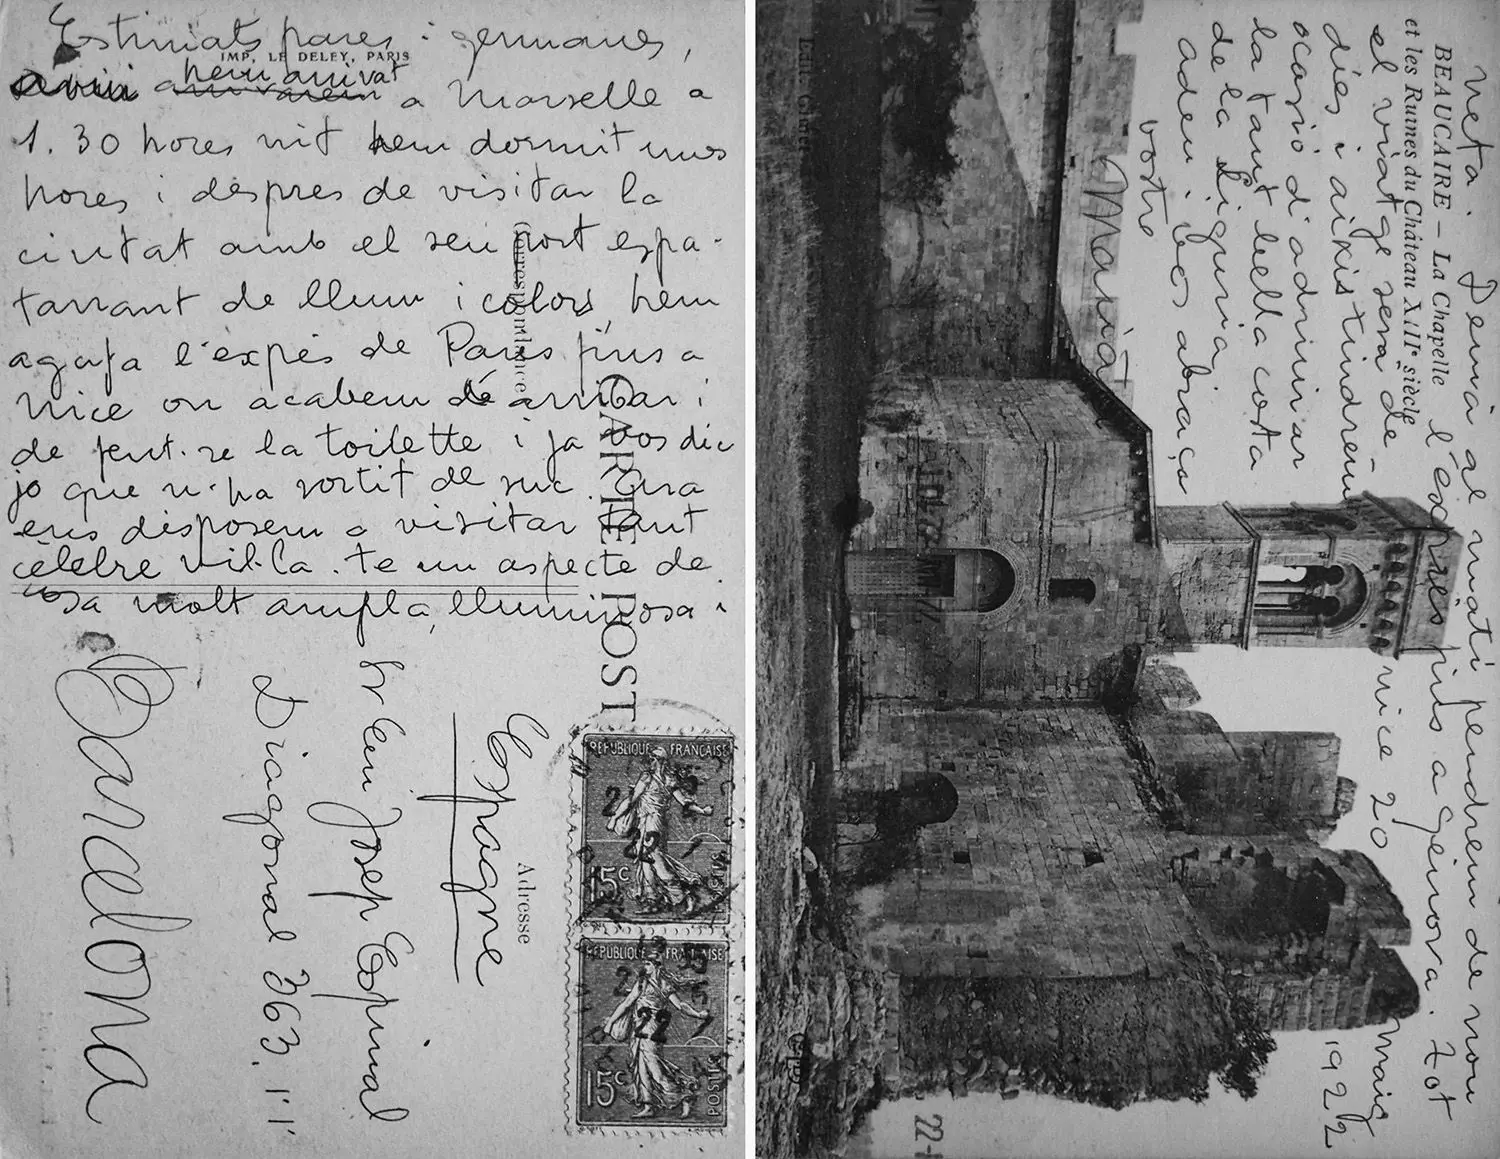 Estimats pares i germanes,
IMP. LE DELEY, PARIS
avui arrivarem hem arrivat a Marselle a
1.30 hores nit hem dormit unes
hores i despres de visitar la
ciutat amb el seu port espa-
tarrant de llum i colors, hem
agafa l'expés de Paris fins a
Nice on acabem de arribar i
de fent-se la toilette i ja vos dic
jo que n'ha sortit de suc. Ara
ens disposem a visitar tant
célebre vil·la. te un aspecte de
cosa molt ampla, lluminosa i
Correspondance
CARTE POST
Adresse
Espagne
Sr. En Josep Espinal
Diagonal 363. 1.1
Barcelona
RÉPUBLIQUE FRANÇAISE
15c
POSTES
RÉPUBLIQUE FRANÇAISE
15c
POSTES
22
neta. Demà al matí pendrem de nou
l'exprés fins a Gènova. Tot
el viatge sera de
dies i aixis tindrem
ocasió d'admirar
la tant bella costa
de la Liguria,
adeu i vos abraça
vostre
Marià
Nice 20 maig 1922
BEAUCAIRE – La Chapelle
et les Ruines du Château XIIIe siècle
22-